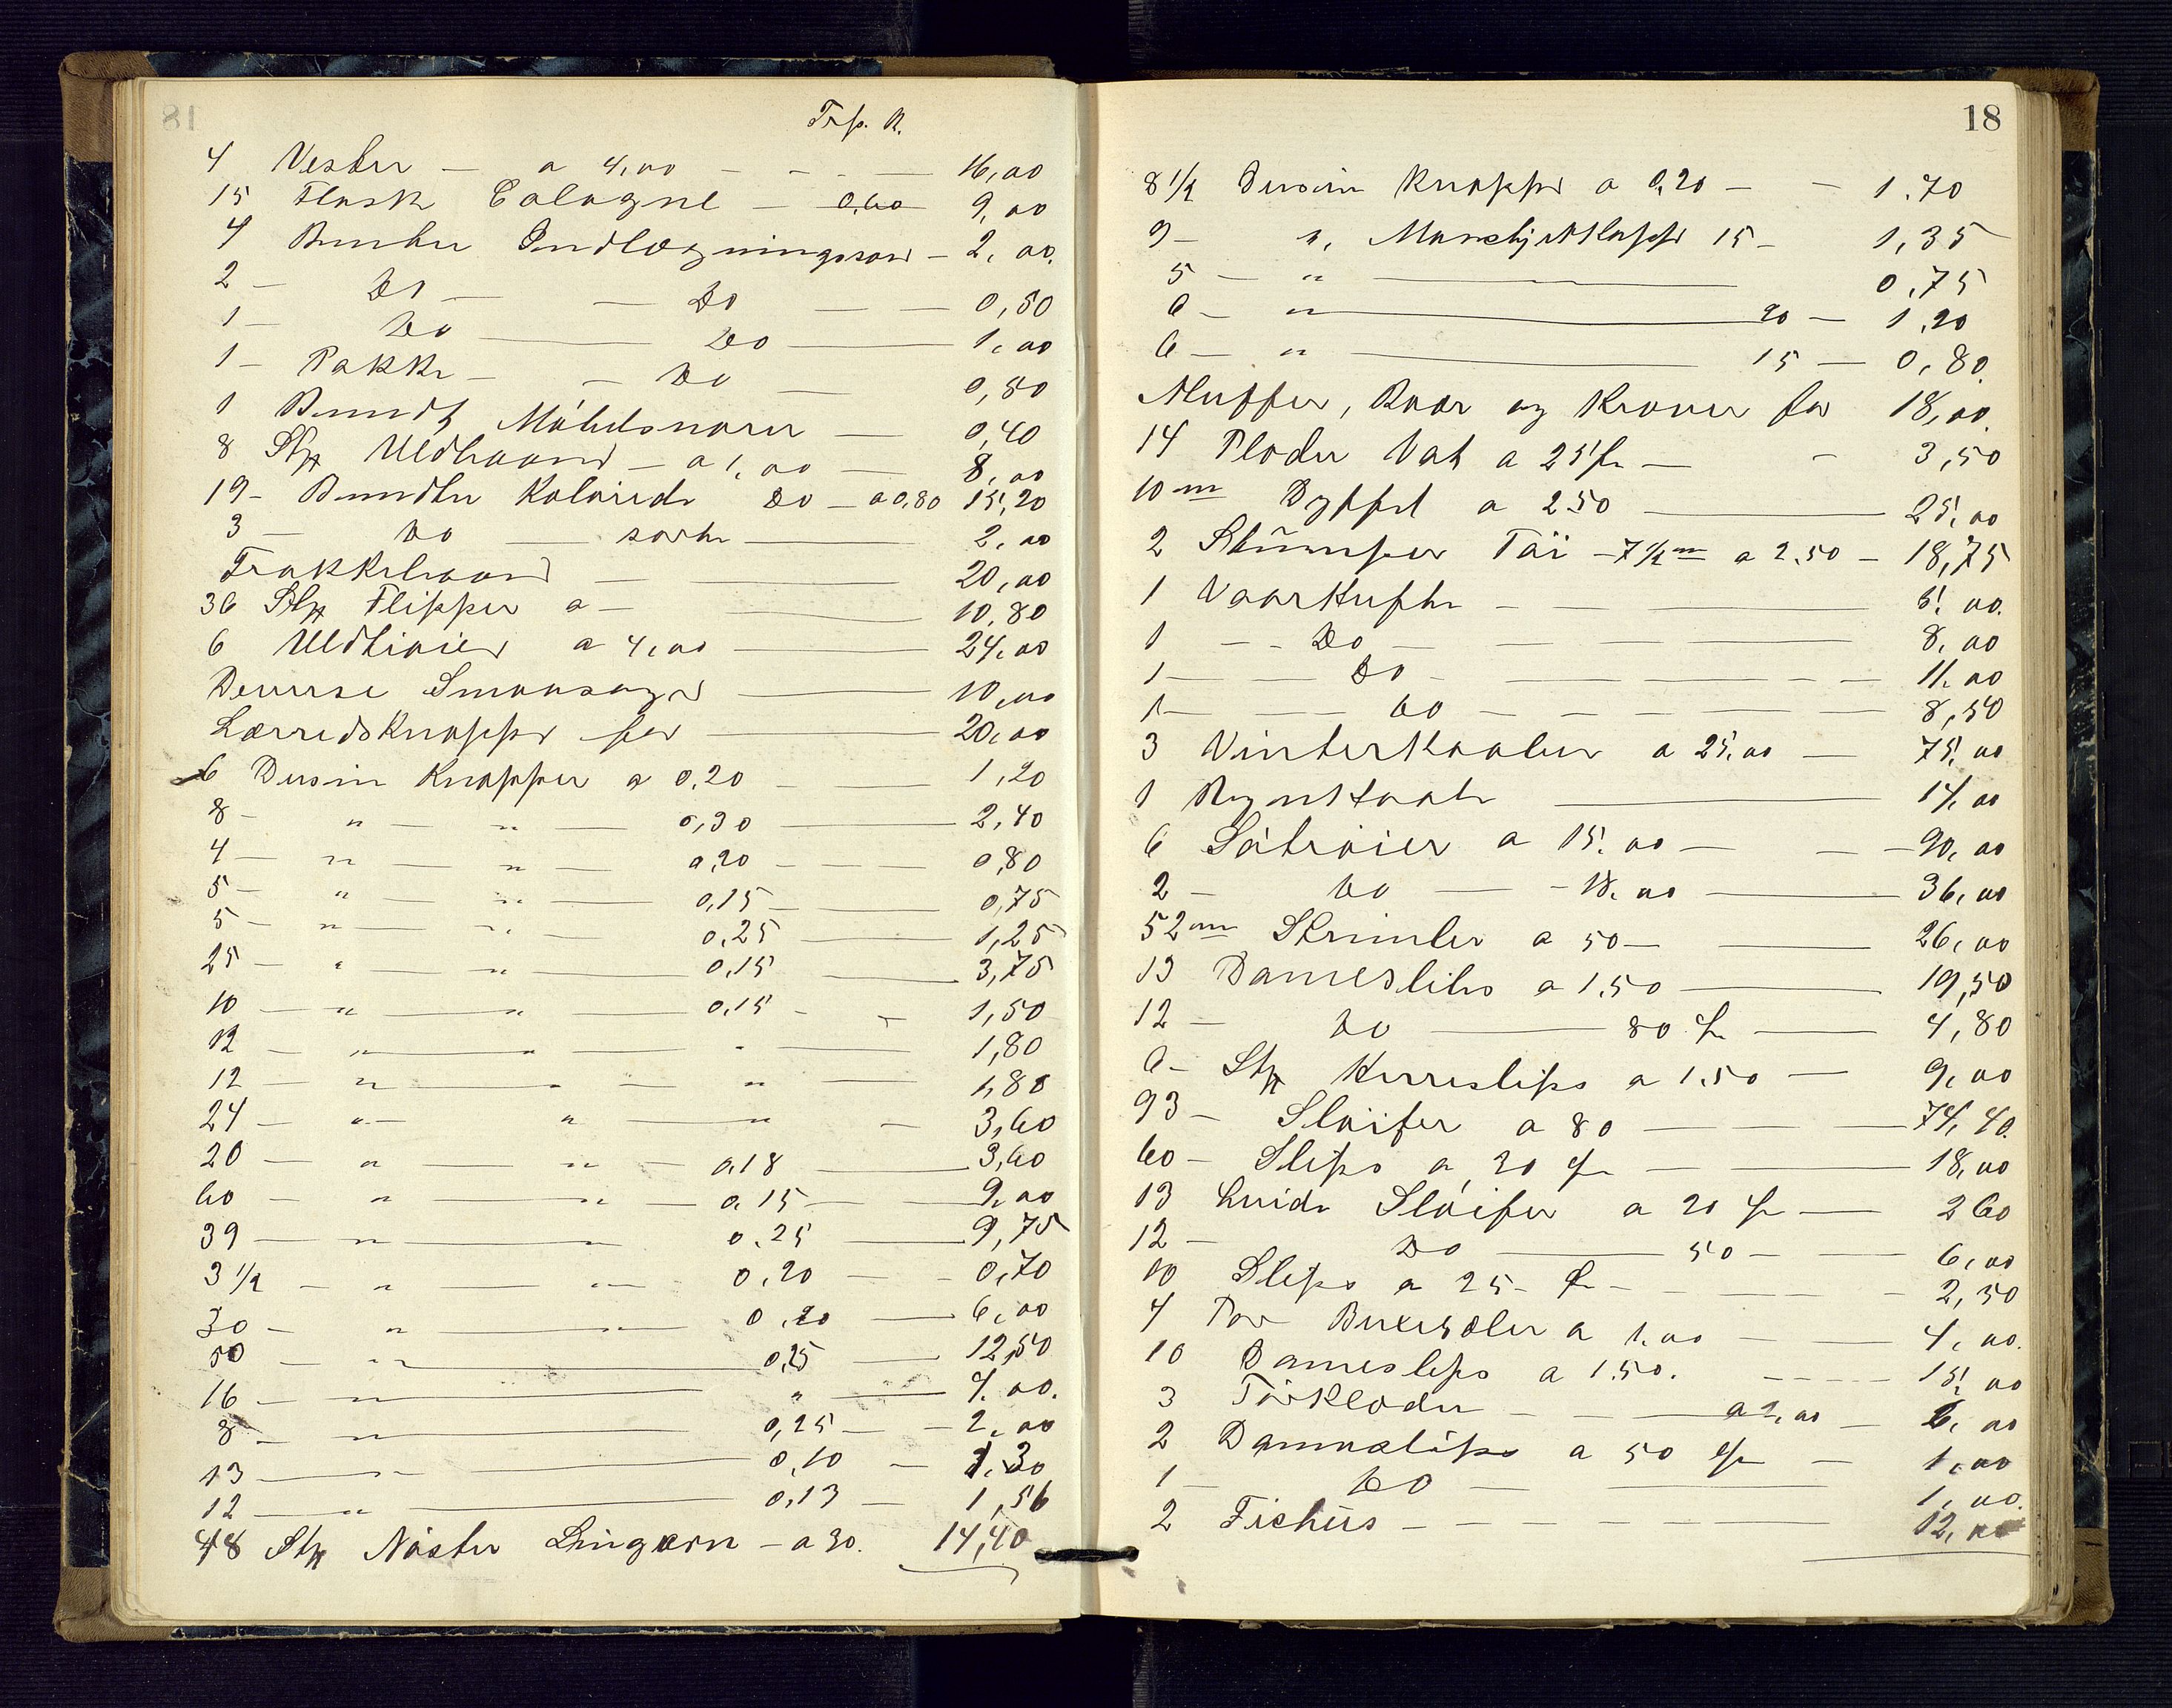 Trp. R.
4 Vester — a 4,00 - - - 16,00
15 Flask Cologne — 0,60 9,00
4 Bunter Indlægningssnor - 2,00.
2 - Do — — Do — — 0,50
1 - Do — Do — 1,00
1 - Pakke - - Do — 0,50
1 Bundt Möbelsnorer — 0,40
8 Stk Uldbaand - a 1,00 — 8,00
19 - Bundter Kolörede Do - a 0,80 15,20
3 — Do — sorte — 2,00
Frakkebaand — — 20,00
36 Stk Flipper a — — 10,80
6 Uldtröier a 4,00 — 24,00
Deverse Smaasager — 10,00
Lærredsknapper for — 20,00
6 Dusin Knapper a 0,20 — — 1,20
8 - " — " — 0,30 — 2,40
4 — " — " — 0,20 - — 0,80
5 — " — " — 0,15 — — 0,75
5 — " — " — 0,25 — 1,25
25 — " — " — 0,15 — 3,75
10 — " — " — 0,15 - - 1,50
12 — " — " — " — 1,80
12 — " — " — " — 1,80
24 — " — " — " — 3,60
20 — " — " — 0,18 — 3,60
60 — " — " — 0,15 — — 9,00
39 — " — " 0,25 — 9,75
3 1/2 - " — " — 0,20 — - 0,70
30 - " — " — 0,20 — 6,00
50 — " — 0,25 — 12,50
16 — " — " — 4,00.
8 — " — 0,25 — - 2,00
13 — " — 0,10 — 1,30
12 — " — 0,13 — 1,56
48 Stk Nöster Lingarn - a 30. 14,40
18
8 1/2 Dusin Knapper a 0,20 — — 1.70
9 - " Manchjetknapper 15 - 1,35
5 — " — 0,75
6 - " — 20 — 1,20
6 — " — 15 — 0,80.
Muffer, Boar og Kraver for 18,00.
14 Plader Vat a 25 Øre — - 3,50
10 m Dyffel a 2 50 — 25,00
2 Stumper Töi - 7 1/2 m a 2.50 - 18,75
1 Vaarkufte - — — 5,00.
1 - - Do — — — 8,00
1 — — — Do - — — — 11,00
1 — — — Do - — — — 8,50
3 Vinterkaaber a 25,00 — 75,00
1 Regnkaabe — 14,00
6 Sätröier a 15,00 — — - 90,00
2 - Do — - 18,00 — 36,00
52 m Strimler a 50 — — 26,00
13 Dameslibs a 1.50 — 19,50
12 — Do — 80 Øre — 4,80
6 - Stk Herreslips a 1.50 — 9,00
93 - Slöifer a 80 — — — 74,40.
60 - Slips a 30 Øre — — 18,00
13 hvide Slöifer a 20 Øre — 2 60
12 — Do — 50 — — 6,00
10 Slips a 25 - Øre - - — - 2,50
4 Par Buxeseler a 1,00 — — 4,00.
10 Dameslips a 1.50. - - - - 15,00
3 Törklæder - - — a 2,00 — 6,00
2 Dameslips a 50 Øre — 1,00
1 — Do — — 1,00.
2 Fichüs - - - - - — 12,00